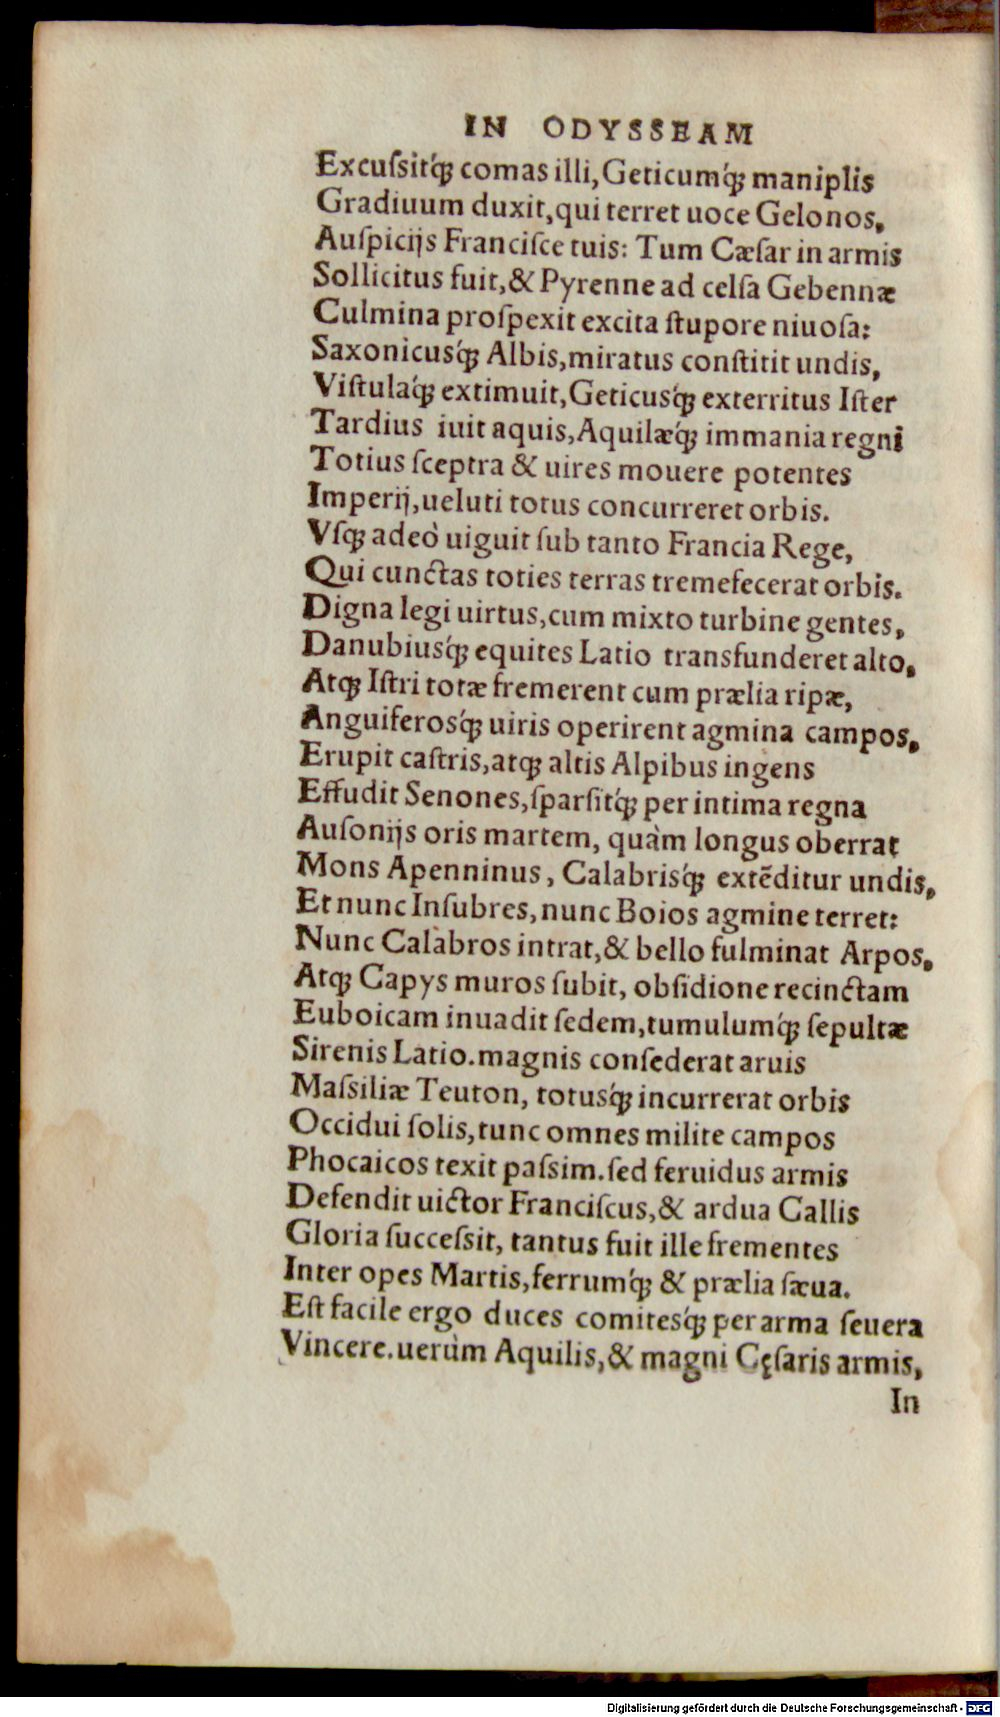 IN ODYSSEAM
Excuſsitq́ꝫ comas illi, Geticumq́ꝫ maniplis
Gradiuum duxit, qui terret uoce Gelonos,
Auſpicijs Franciſce tuis: Tum Cæſar in armis
Sollicitus fuit, & Pyrenne ad celſa Gebennæ
Culmina proſpexit excita ſtupore niuoſa:
Saxonicusq́ꝫ Albis, miratus conſtitit undis,
Viſtulaq́ꝫ extimuit, Geticusq́ꝫ exterritus Iſter
Tardius iuit aquis, Aquilæq́ꝫ immania regni
Totius ſceptra & uires mouere potentes
Imperij, ueluti totus concurreret orbis.
Vſqꝫ adeò uiguit ſub tanto Francia Rege,
Qui cunctas toties terras tremefecerat orbis.
Digna legi uirtus, cum mixto turbine gentes,
Danubiusq́ꝫ equites Latio transfunderet alto,
Atqꝫ Iſtri totæ fremerent cum prælia ripæ,
Anguiferosq́ꝫ uiris operirent agmina campos,
Erupit caſtris, atqꝫ altis Alpibus ingens
Effudit Senones, ſparſitq́ꝫ per intima regna
Auſonijs oris martem, quàm longus oberrat
Mons Apenninus, Calabrisq́ꝫ extēditur undis,
Et nunc Inſubres, nunc Boios agmine terret:
Nunc Calabros intrat, & bello fulminat Arpos,
Atqꝫ Capys muros ſubit, obſidione recinctam
Euboicam inuadit ſedem, tumulumq́ꝫ ſepultæ
Sirenis Latio. magnis conſederat aruis
Maſsiliæ Teuton, totusq́ꝫ incurrerat orbis
Occidui ſolis, tunc omnes milite campos
Phocaicos texit paſsim. ſed feruidus armis
Defendit uictor Franciſcus, & ardua Gallis
Gloria ſucceſsit, tantus fuit ille frementes
Inter opes Martis, ferrumq́ꝫ & prælia ſæua.
Eſt facile ergo duces comitesq́ꝫ per arma ſeuera
Vincere. uerùm Aquilis, & magni Cęſaris armis,
In
Digitalisierung gefördert durch die Deutsche Forschungsgemeinschaft - DFG